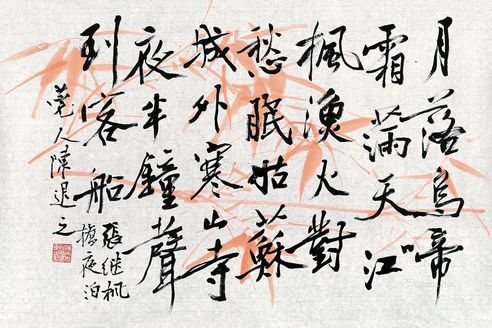 月落烏啼
霜滿天江
楓漁火對
愁眠姑蘇
城外寒山寺
夜半鐘聲
到客船
張继枫
橋夜泊
莞人陳退之